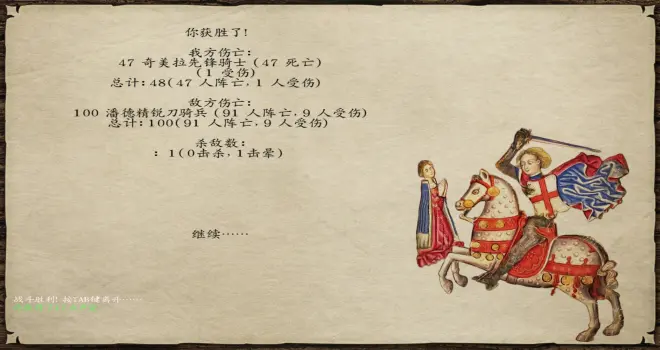 你获胜了!
我方伤亡:
47 奇美拉先锋骑士 (47 死亡)
(1 受伤)
总计: 48(47 人阵亡, 1 人受伤)
敌方伤亡:
100 潘德精锐刀骑兵 (91 人阵亡, 9 人受伤)
总计: 100(91 人阵亡, 9 人受伤)
杀敌数:
: 1(0击杀, 1击晕)
继续……
战斗胜利! 按TAB键离开……